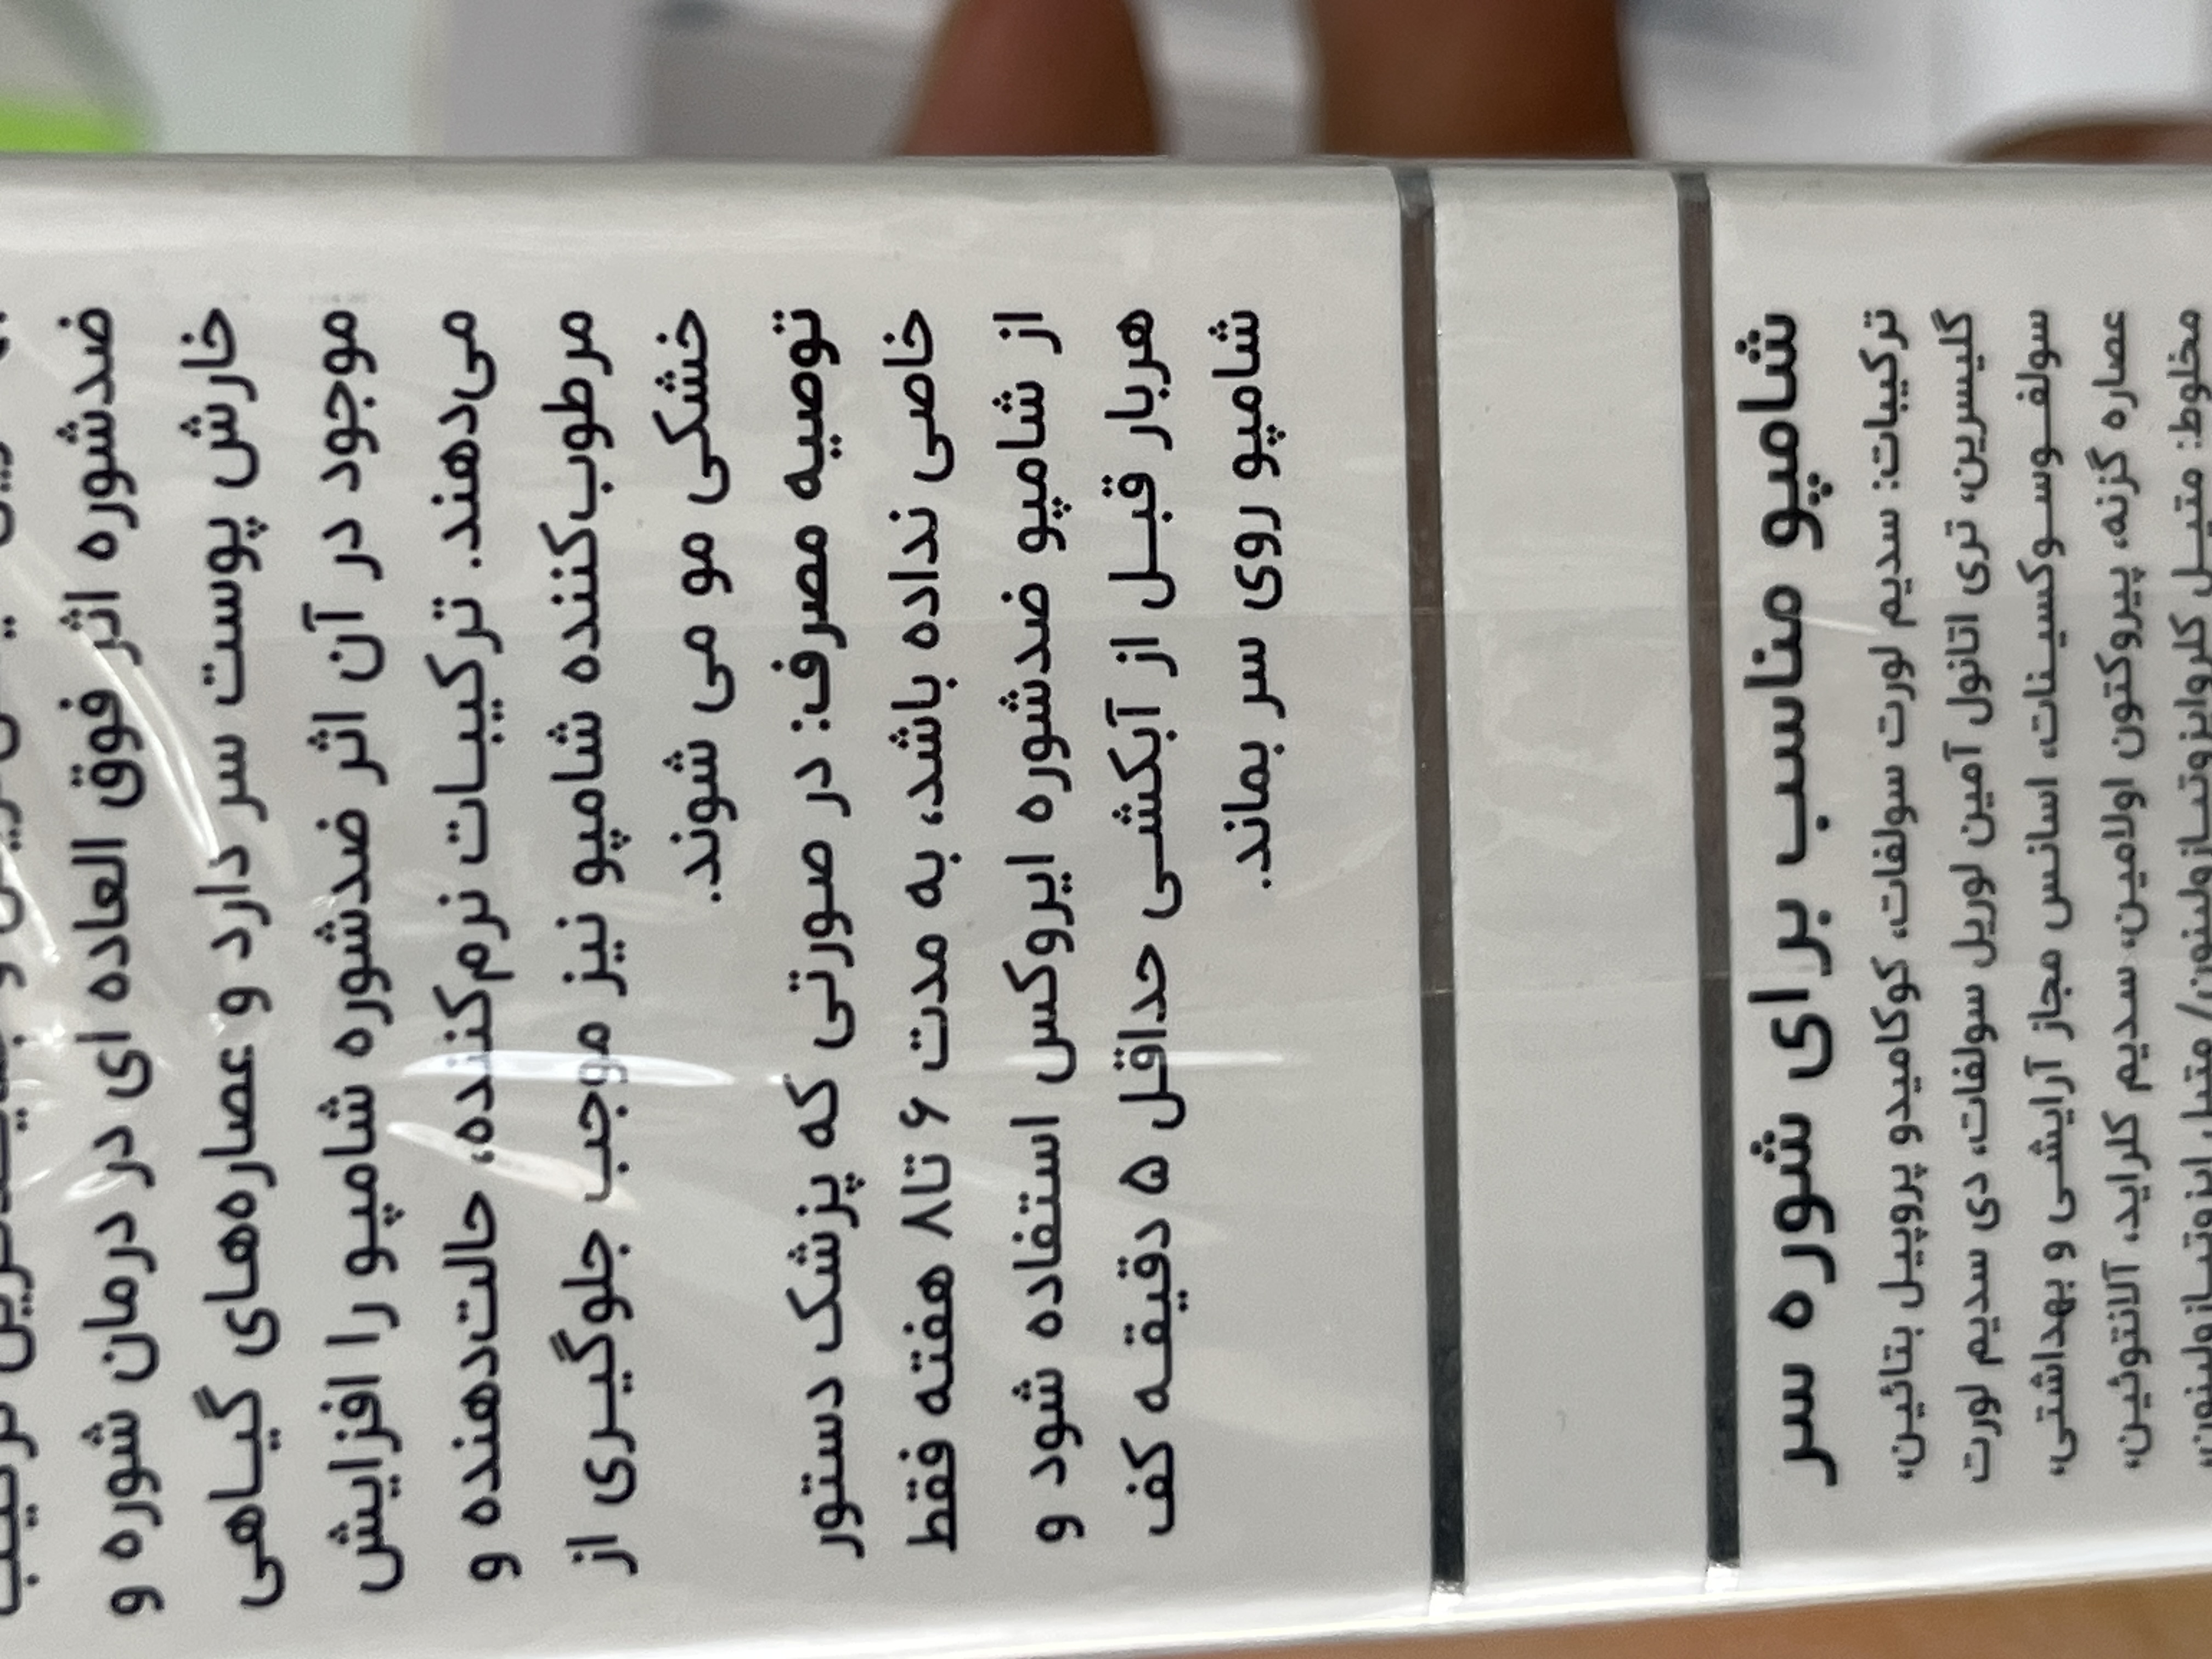 ضدشوره اثر فوق العاده ای در درمان شوره و
خارش پوست سر دارد و عصاره‌های گیاهی
موجود در آن اثر ضدشوره شامپو را افزایش
می‌دهند. ترکیبات نرم‌کننده، حالت‌دهنده و
مرطوب‌کننده شامپو نیز موجب جلوگیری از
خشکی مو می شوند.
توصیه مصرف: در صورتی که پزشک دستور
خاصی نداده باشد، به مدت ۶ تا۸ هفته فقط
از شامپو ضدشوره ایروکس استفاده شود و
هربار قبل از آبکشی حداقل ۵ دقیقه کف
شامپو روی سر بماند.
شامپو مناسب برای شوره سر
ترکیبات: سدیم لورت سولفات، کوکامیدو پروپیل بتائین،
گلیسرین، تری اتانول آمین لوریل سولفات، دی سدیم لورت
سولفوسوکسینات، اسانس مجاز آرایشی و بهداشتی،
عصاره گزنه، پیروکتون اولامین، سدیم کلراید، آلانتوئین،
مخلوط: متیل کلروایزوتیازولینون/ متیل ایزوتیازولینون،